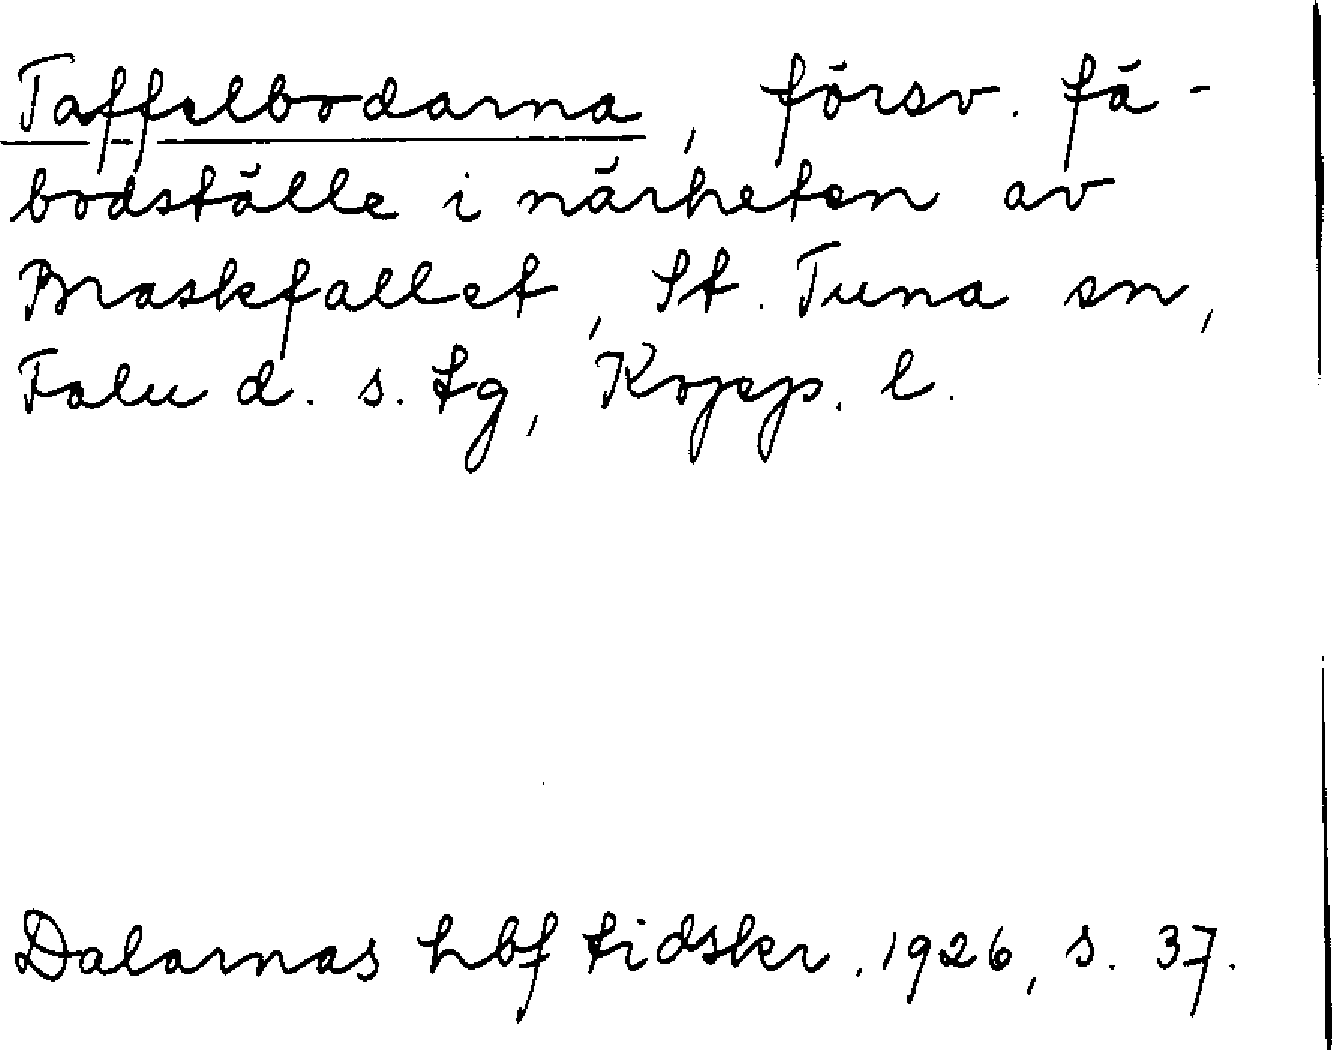 Taffelbodarna, försv. fä-
bodställe i närheten av
Braskfallet, St. Tuna sn,
Falu d. s. tg, Kopp. l.
Dalarnas hbf tidskr. 1926, s. 37.